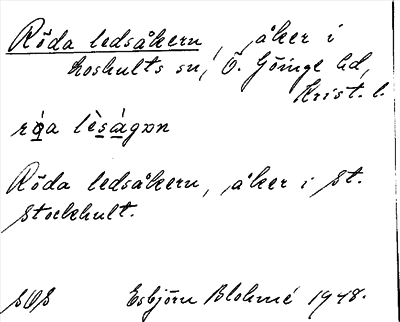 Röda ledsåkern, åker i
Loshults sn, Ö. Göinge hd,
Krist. l.
rǫ́a lèságɷn
Röda ledsåkern, åker i St.
Stockhult.
SOS Esbjörn Blohmé 1948.